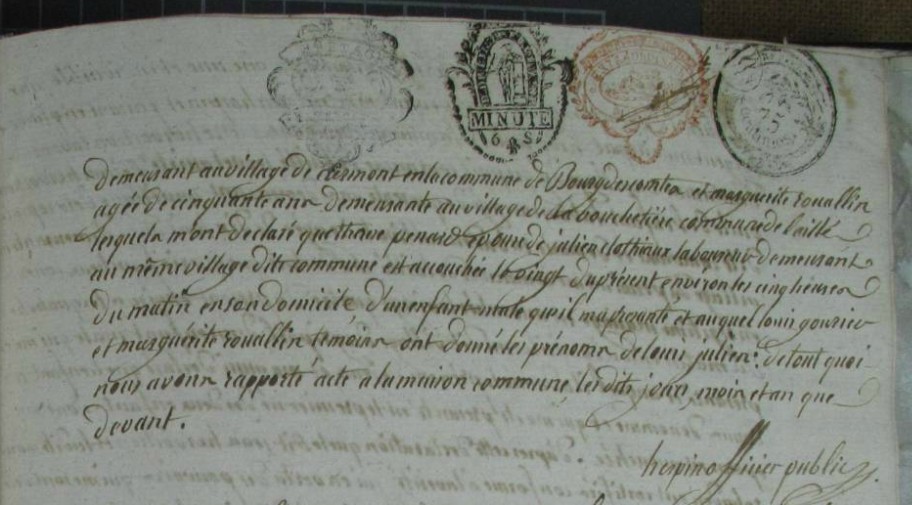 MINUTE
6 8 Ss
demeurant au village de clermont en la commune de Bourgdescomtes et marguerite rouallin
agée de cinquante ans demeurante au village de la bouchetière commune de laillé
lesquels mont declaré que penard epouse de julien clothiaux laboureur demeurant
au même village dite commune est accouchée le vingt du présent environ les cinq heures
du matin en son domicile d'un enfant male quil ma presenté et auquel louis gourier
et marguerite rouallin témoins ont donné les prénoms de louis julien. de tout quoi
nous avons rapporté acte a la maison commune les dits jours, mois et an que
devant.
herpin officier public